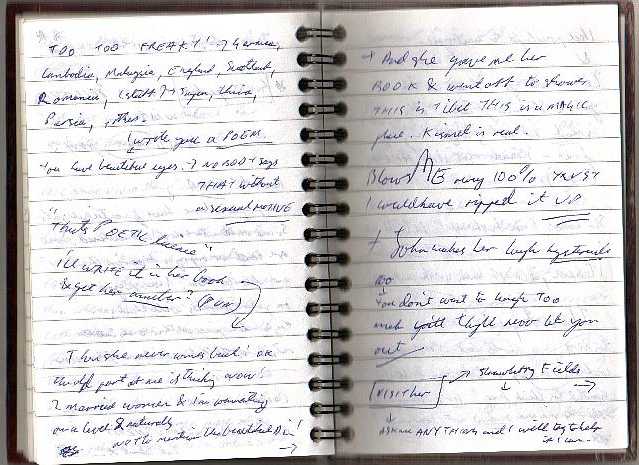 TOO TOO FREAKY! → Germany,
Cambodia, Malaysia, England, Scotland,
Romania, (staff) → Japan, China,
Persia,
I wrote you a POEM.
You have beautiful eyes. → NOBODY says
THAT without
a sexual MOTIVE
"Thats POETIC license"
I'll WRITE it in her book
& get her another? (PUN)
Then she never comes back! ok
part of me is thinking wow!
2 married women & I'm
on a level & naturally
not to mention the beautiful
+ And she gave me her
BOOK & went off to shower
THIS is Tibet THIS is a MAGIC
place. Kismet is real.
Blows ME away 100% TRUST
I would have ripped it UP
+ John makes her laugh hysterically
You don't want to laugh TOO
much you'll they'll never let you
out
VISIT her → Strawberry Fields
Ask me ANYTHING and I will try to help
if I can.